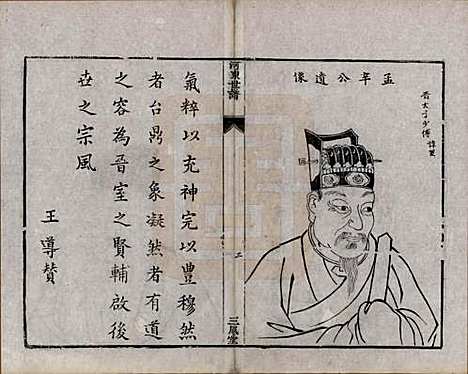 孟年公遺像
晋太子少傅諱夏
河東世譜
二
三鳳堂
氣粹以充神完以豊穆然
者台鼎之象凝然者有道
之容為晋室之賢輔啟後
世之宗風
王導賛